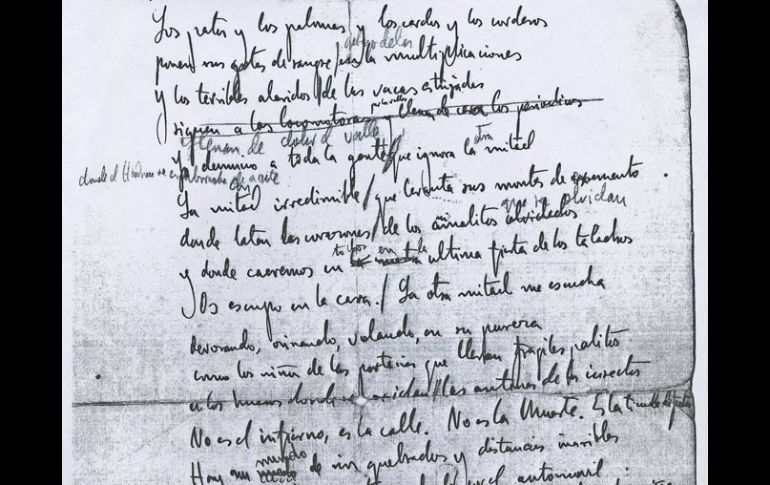 Los patos y los palomas y los cerdos y los corderos
debajo de las
ponen sus gotas de sangre / multiplicaciones
y los terribles alaridos / de las vacas estrujadas
siguen a las locomotoras y llena de los periodicos
llenan de dolor el valle
donde el Hudson se emborracha de aceite
Yo denuncio a toda la gente / que ignora la otra mitad
La mitad irredimible / que levanta sus montes de cemento
que se olvidan
donde laten los corazones / de los animalitos olvidados
y donde caeremos todos en la ultima fiesta de los taladros
Os escupo en la cara. / La otra mitad me escucha
devorando, orinando, volando, en su pureza
como los niños de las porterias que llevan fragiles palitos
a los huecos donde se oxidan / las antenas de los insectos
No es el infierno, es la calle. No es la Muerte. Es la tienda de frutas
Hay un mundo de rios quebrados y distancias inasibles
el automovil